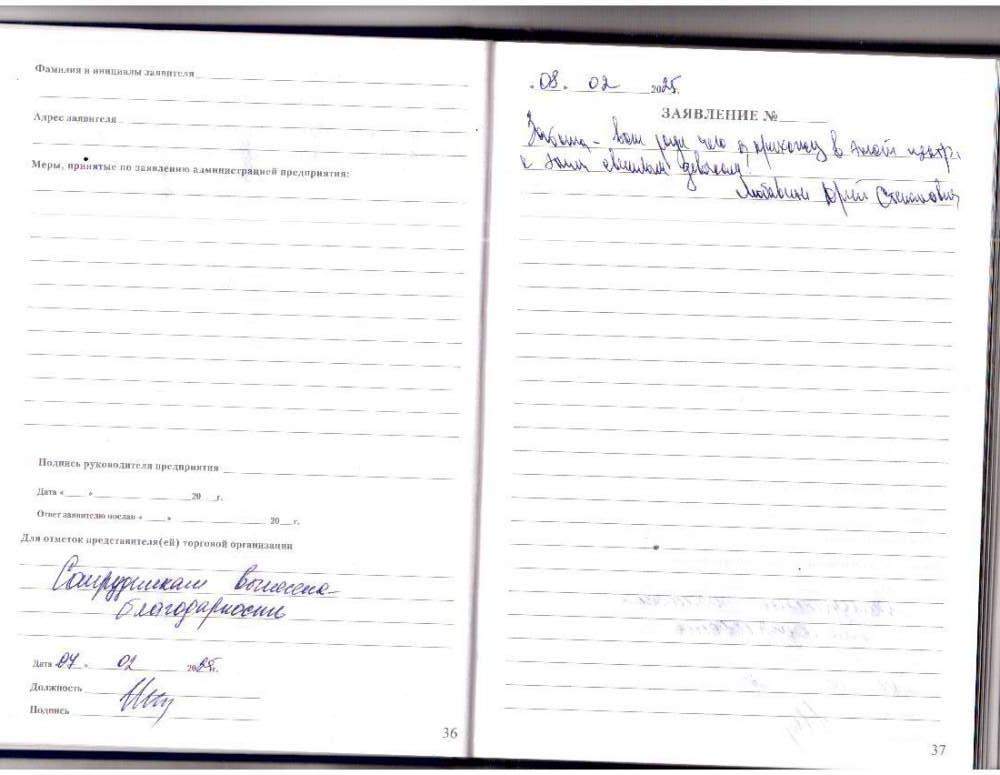 Фамилия и инициалы заявителя
Адрес заявителя
Меры, принятые по заявлению администрацией предприятия:
Подпись руководителя предприятия
Дата « » 20 г.
Ответ заявителю послан « » 20 г.
Для отметок представителя(ей) торговой организации
Сотрудникам вынесена
благодарность
Дата «07» 02 2025г.
Должность
Подпись
36
08. 02 2025
ЗАЯВЛЕНИЕ №
Забота - вот ради чего я прихожу в этот центр
к этим милым девочкам.
Юрий Степанович
37